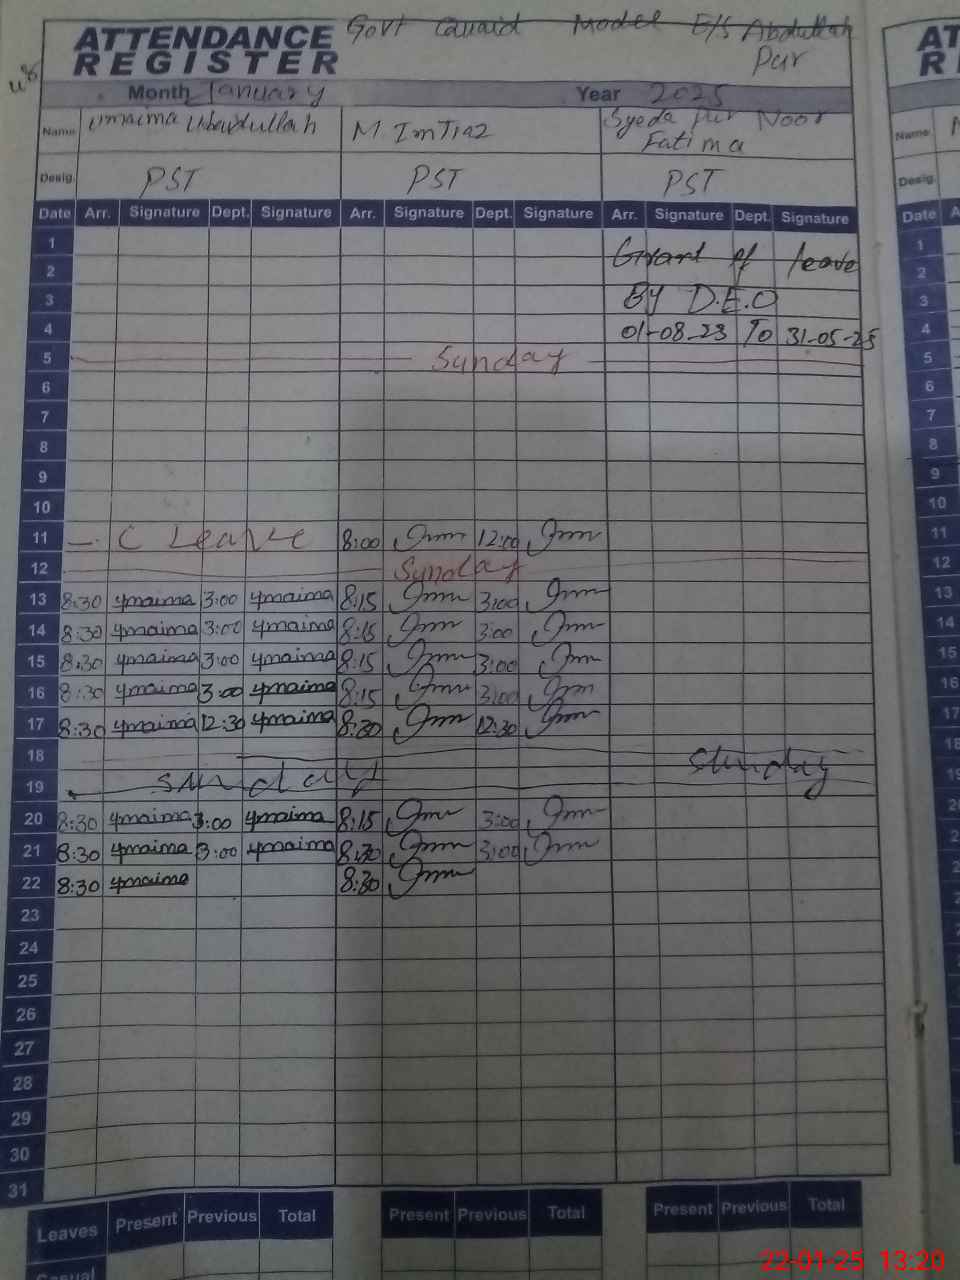 ATTENDANCE Govt Quaid Model E/S Abdullah
REGISTER Pur
Month January Year 2025
Name Umaima Ubaidullah M Imtiaz Syeda Noor
Fatima
Desig. PST PST PST
Date Arr. Signature Dept. Signature Arr. Signature Dept. Signature Arr. Signature Dept. Signature
1
2 Grant of leave
3 By D.E.O
4 01-08-23 To 31-05-25
5 Sunday
6
7
8
9
10
11 C Leave 8:00 12:00
12 Sunday
13 8:30 Umaima 3:00 Umaima 8:15 3:00
14 8:30 Umaima 3:00 Umaima 8:15 3:00
15 8:30 Umaima 3:00 Umaima 8:15 3:00
16 8:30 Umaima 3:00 Umaima 8:15 3:00
17 8:30 Umaima 12:30 Umaima 8:30 12:30
18
19 Sunday Sunday
20 8:30 Umaima 3:00 Umaima 8:15 3:00
21 8:30 Umaima 3:00 Umaima 8:30 3:00
22 8:30 Umaima 8:30
23
24
25
26
27
28
29
30
31
Leaves Present Previous Total Present Previous Total Present Previous Total
Casual
22-01-25 13:20
AT
Name
Desig.
Date
1
2
3
4
5
6
7
8
9
10
11
12
13
14
15
16
17
18